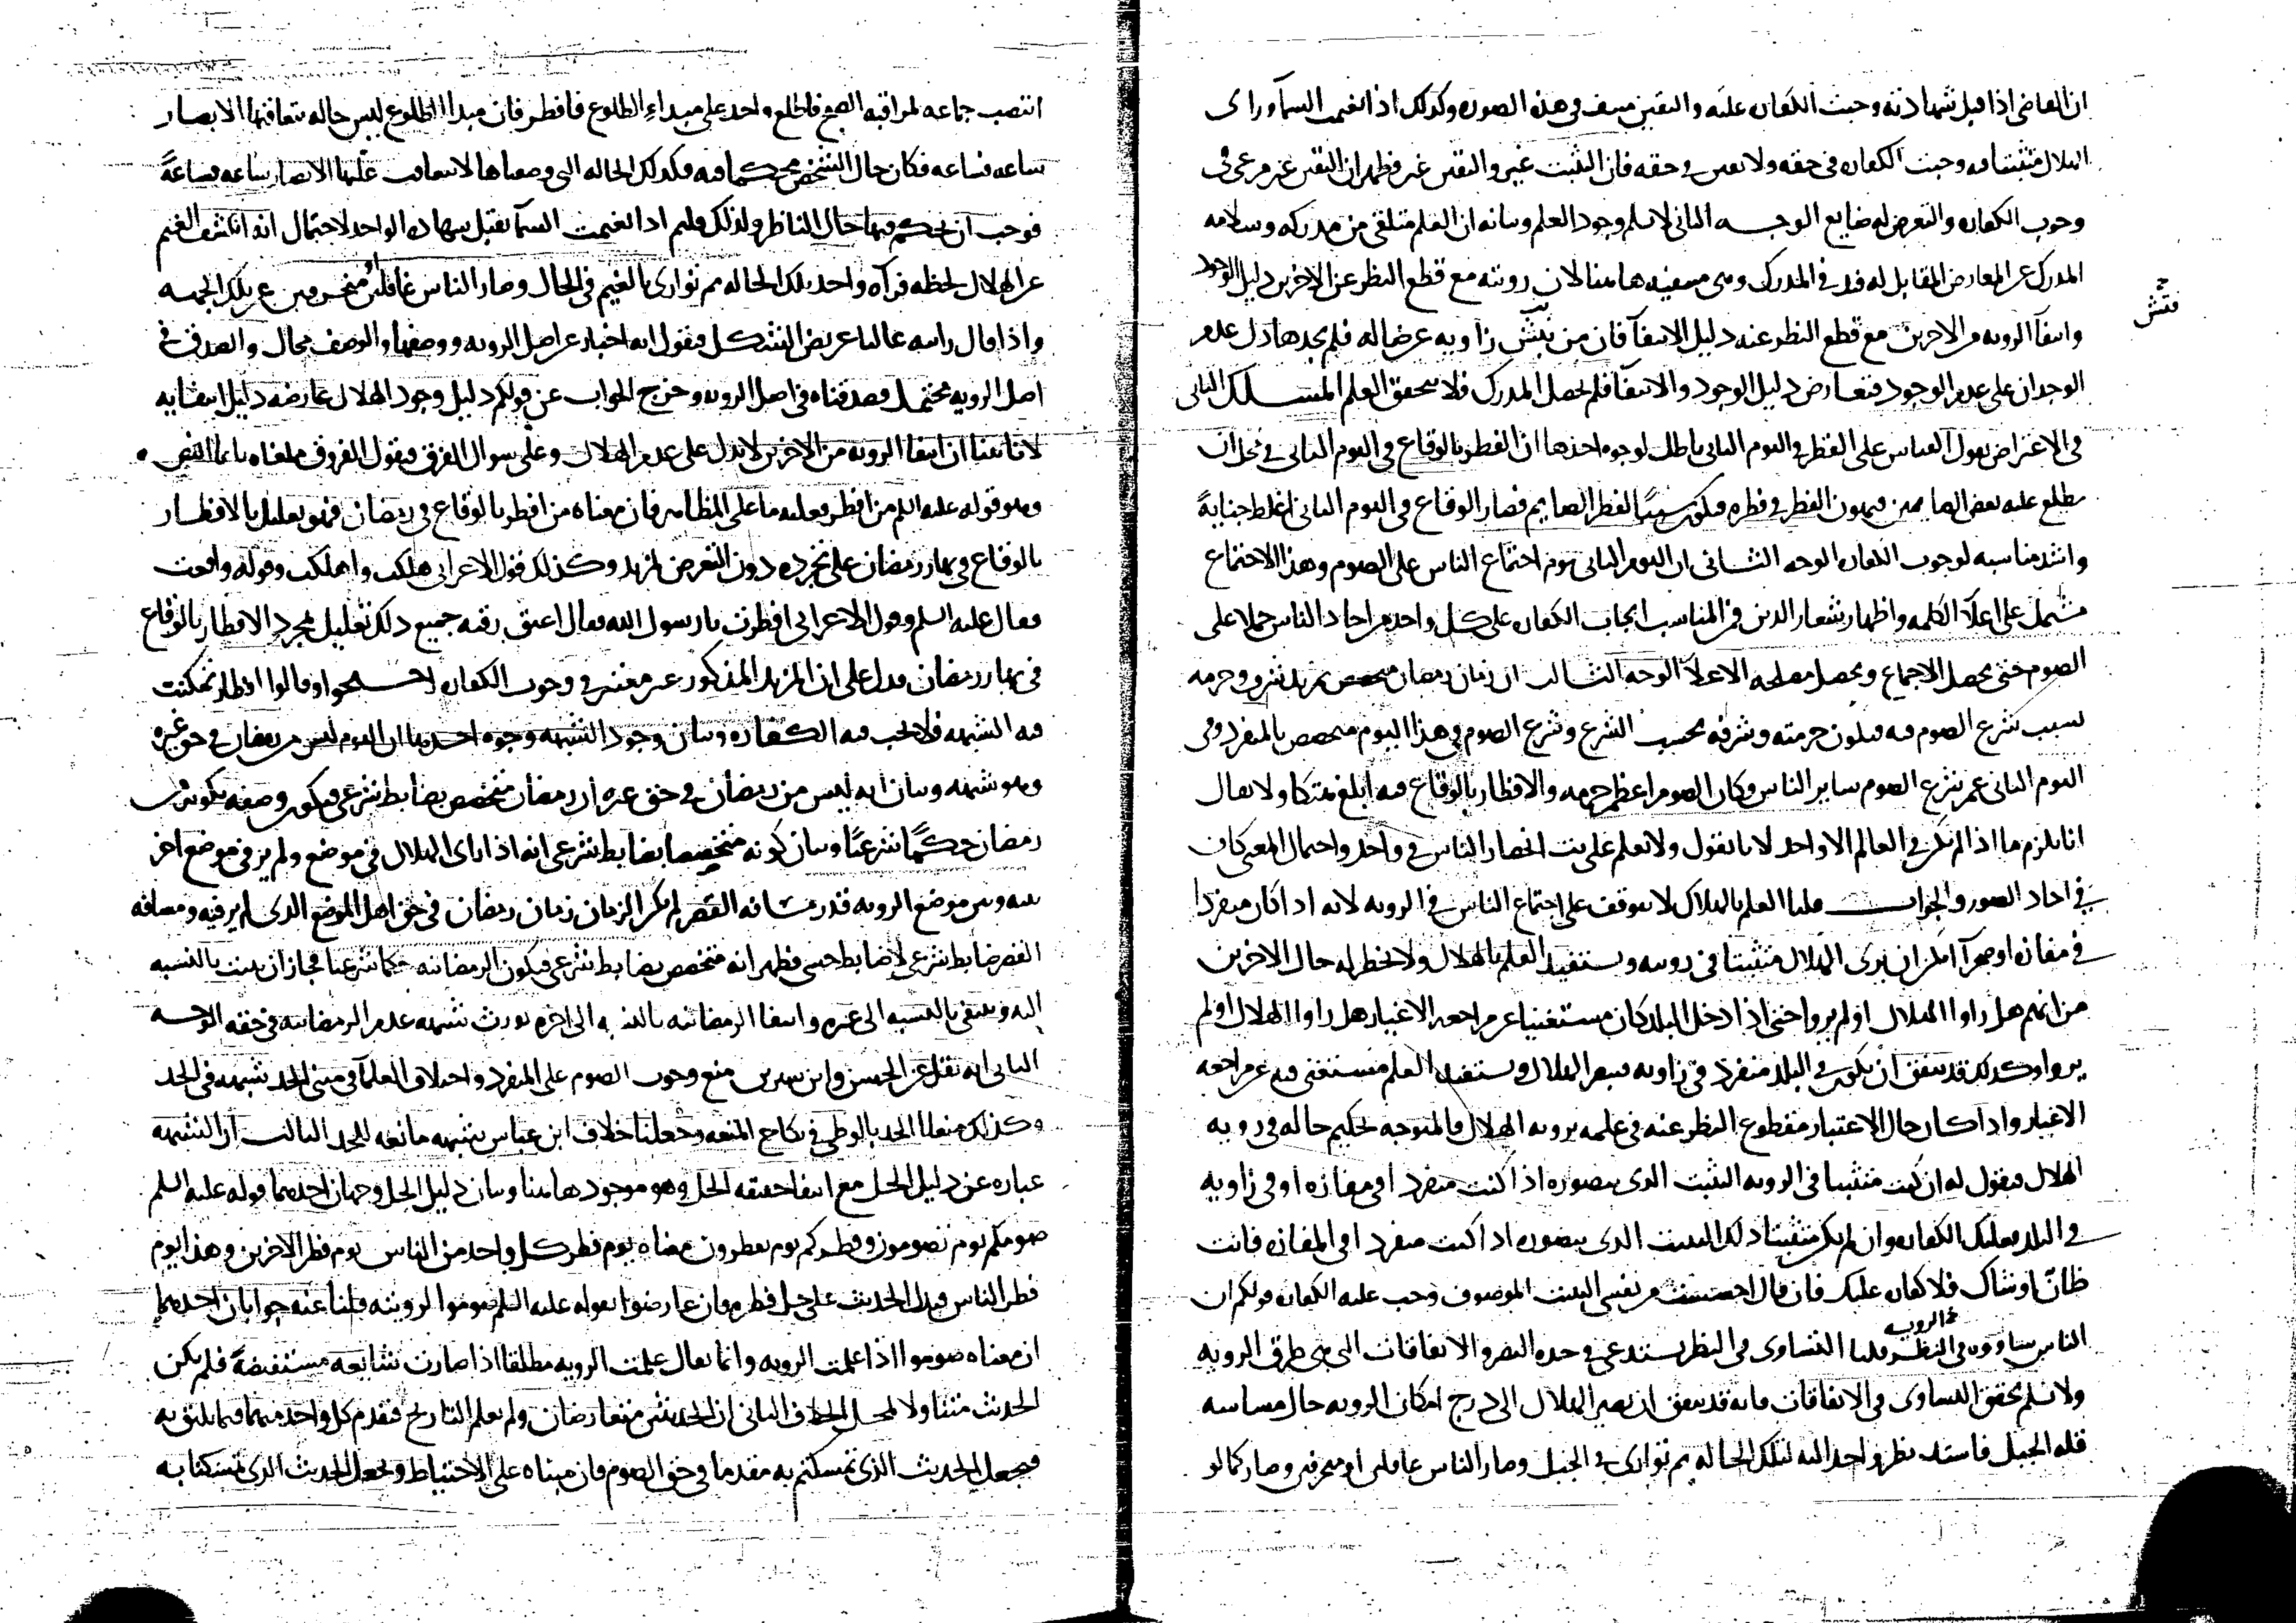 ان القاضي اذا قبل شهادته وجبت الكفاره عليه واليقين منتف في هذه الصوره وكذلك اذا تغيمت السمآ وراى
الهلال متثبتا فيه وجبت الكفاره في حقه ولا يقين في حقه فان التثبت غير واليقين غير وظهر ان اليقين غير مرعي في
وجوب الكفاره والتعرض له ضايع الوجه الثاني لا نسلم وجود العلم وبيانه ان العلم متلقى من مدركه وسلامه
المدرك عن المعارض المقابل له قدر في المدرك وهي منتفيه هاهنا لان رويته مع قطع النظر عن الاخرين دليل الوجود
وانتفآ الرويه من الاخرين مع قطع النظر عنه دليل الانتفآ فان من فتش زاويه عرضا له فلم يجدها دل عدم
فتش
الوجدان على عدم الوجود فتعارض دليل الوجود والانتفآ فلم يحصل المدرك فلا يتحقق العلم المسلك الثاني
في الاعتراض نقول القياس على الفطر في اليوم الثاني باطل لوجوه احدها ان الفطر بالوقاع في اليوم الثاني في محل ان
يطلع عليه بعض الصايمين فيهون الفطر في نظره فيكون سببًا لفطر الصايم فصار الوقاع في اليوم الثاني اغلظ جنايةً
واشد مناسبه لوجوب الكفاره الوجه الثاني ان اليوم الثاني يوم اجتماع الناس على الصوم وهذا الاجتماع
مشتمل على اعلآ الكلمه واظهار شعار الدين فمن المناسب ايجاب الكفاره على كل واحد من احاد الناس حملا على
الصوم حتى يحصل الاجماع ويحصل مصلحه الاعلآ الوجه الثالث ان زمان رمضان متخصص بمزيد شرف وحرمه
بسبب شرع الصوم فيه فيكون حرمته وشرفه بحسب الشرع وشرع الصوم في هذا اليوم متخصص بالمنفرد وفي
اليوم الثاني عم شرع الصوم ساير الناس وكان الصوم اعظم حرمه والافطار بالوقاع فيه ابلغ هتكا ولا يقال
انا نلزم ما اذا لم يكن في العالم الا واحد لانا نقول ولا نعلم على بت انحصار الناس في واحد واحتمال المعنى كاف
في احاد الصور والجواب قلنا العلم بالهلال لا يتوقف على اجتماع الناس في الرويه لانه اذا كان منفردا
في مفازه او صحرآ امكن ان يرى الهلال متثبتا في رويته ويستفيد العلم بالهلال ولا يخطر له حال الاخرين
من انهم هل راوا الهلال او لم يروا حتى اذا دخل البلد كان مستغنيا عن مراجعه الاغيار هل راوا الهلال او لم
يروا وكذلك قد يتفق ان يكون في البلد منفردا في زاويه فيبصر الهلال ويستفيد العلم مستغنى فيه عن مراجعه
الاغيار واذا كان حال الاغيار مقطوع النظر عنه في علمه برويه الهلال فالمتوجه تحكيم حاله في رويه
الهلال فنقول له ان كنت متثبتا في الرويه التثبت الذي يتصوره اذا كنت منفردا في مفازه او في زاويه
في البلد فعليك الكفاره وان لم يكن متثبتا ذلك التثبت الذي يتصوره اذا كنت منفردا في المفازه فانت
ظانّ او شاك فلا كفاره عليك فان قال احسست من نفسي التثبت الموصوف وجب عليه الكفاره قولكم ان
الناس ساووه في النظر قلنا التساوي في النظر يستدعي وحده البصر والاتفاقات التي هي طرق الرويه
ولا نسلم تحقق التساوي في الاتفاقات فانه قد يتفق ان يصير الهلال الى درج امكان الرويه حال مماسه
قله الجبل فاستد نظر واحد اليه لتلك الحاله ثم توارى في الجبل وصار الناس غافلين او منحرفين وصار كما لو
انتصب جماعه لمراقبه الصبح فاطلع واحد على مبداء الطلوع فافطر فان مبدا الطلوع ليس حاله تتعاقبها الابصار
ساعه فساعه فكان حال الشخص محكما فيه فكذلك الحاله التي وصفناها لا تتعاقب عليها الابصار ساعه فساعةً
فوجب ان يحكم فيها حال الناظر ولذلك قلتم اذا تغيمت السمآ يقبل شهاده الواحد لاحتمال انه انكشف الغيم
عن الهلال لحظه فرآه واحد بتلك الحاله ثم توارى بالغيم في الحال وصار الناس غافلين او منحرفين عن تلك الجهه
واذا قال رايته عاليا عريض الشكل فنقول انه اخبار عن اصل الرويه ووصفها والوصف محال والصدق في
اصل الرويه محتمل فصدقناه في اصل الرويه وخرج الجواب عن قولكم دليل وجود الهلال عارضه دليل انتفايه
لانا بينا ان انتفا الرويه من الاخرين لا يدل على عدم الهلال وعلى سوال الفرق فنقول الفروق ملغاه بايما النص
وهو قوله عليه السلم من افطر فعليه ما على المظاهر فان معناه من افطر بالوقاع في رمضان فهو تعليل بالافطار
بالوقاع في نهار رمضان على تجرده دون التعرض لمزيد وكذلك قول الاعرابي هلكت واهلكت وقوله واقعت
فقال عليه السلم وقول الاعرابي افطرت يا رسول الله فقال اعتق رقبه جميع ذلك تعليل بمجرد الافطار بالوقاع
في نهار رمضان فدل على ان المزيد المذكور غير معتبر في وجوب الكفاره احتجوا وقالوا افطار تمكنت
فيه الشبهه فلا يجب فيه الكفاره وبيان وجود الشبهه وجوه احدها ان اليوم ليس من رمضان في حق غيره
وهو شبهه وبيان انه ليس من رمضان في حق غيره ان رمضان متخصص بضابط شرعي فيكون وصفه بكونه من
رمضان حكمًا شرعيًا وبيان كونه متخصصا بضابط شرعي انه اذا راى الهلال في موضع ولم ير في موضع اخر
بينه وبين موضع الرويه قدر مسافه القصر لم يكن الزمان زمان رمضان في حق اهل الموضع الذي لم ير فيه ومسافه
القصر ضابط شرعي لا ضابط حسي فظهر انه متخصص بضابط شرعي فيكون الرمضانيه حكما شرعيا فجاز ان يثبت بالنسبه
اليه وينتفي بالنسبه الى غيره وانتفا الرمضانيه بالنسبه الى اخره يورث شبهه عدم الرمضانيه في حقه الوجه
الثاني انه نقل عن الحسن وابن سيرين منع وجوب الصوم على المنفرد واختلاف العلمآ في مبنى الحد شبهه في الحد
وكذلك منعنا الحد بالوطي في نكاح المتعه وجعلنا خلاف ابن عباس شبهه مانعه للحد الثالث ان الشبهه
عباره عن دليل الحل مع انتفا حقيقه الحل وهو موجود هاهنا وبيان دليل الحل وجهان احدهما قوله عليه السلم
صومكم يوم تصومون وفطركم يوم تفطرون معناه يوم فطر كل واحد من الناس يوم فطر الاخرين وهذا يوم
فطر الناس فيدل الحديث على حل فطره فان عارضوا بقوله عليه السلم صوموا لرويته قلنا عنه جوابان احدهما
ان معناه صوموا اذا علمت الرويه وانما يقال علمت الرويه مطلقا اذا صارت شايعه مستفيضةً فلم يكن
الحديث متناولا لمحل الخلاف الثاني ان الحديثين متعارضان ولم يعلم التاريخ فنقدم كل واحد منهما فيما يليق به
فيجعل الحديث الذي تمسكتم به مقدما في حق الصوم فان مبناه على الاحتياط ونجعل الحديث الذي تمسكنا به